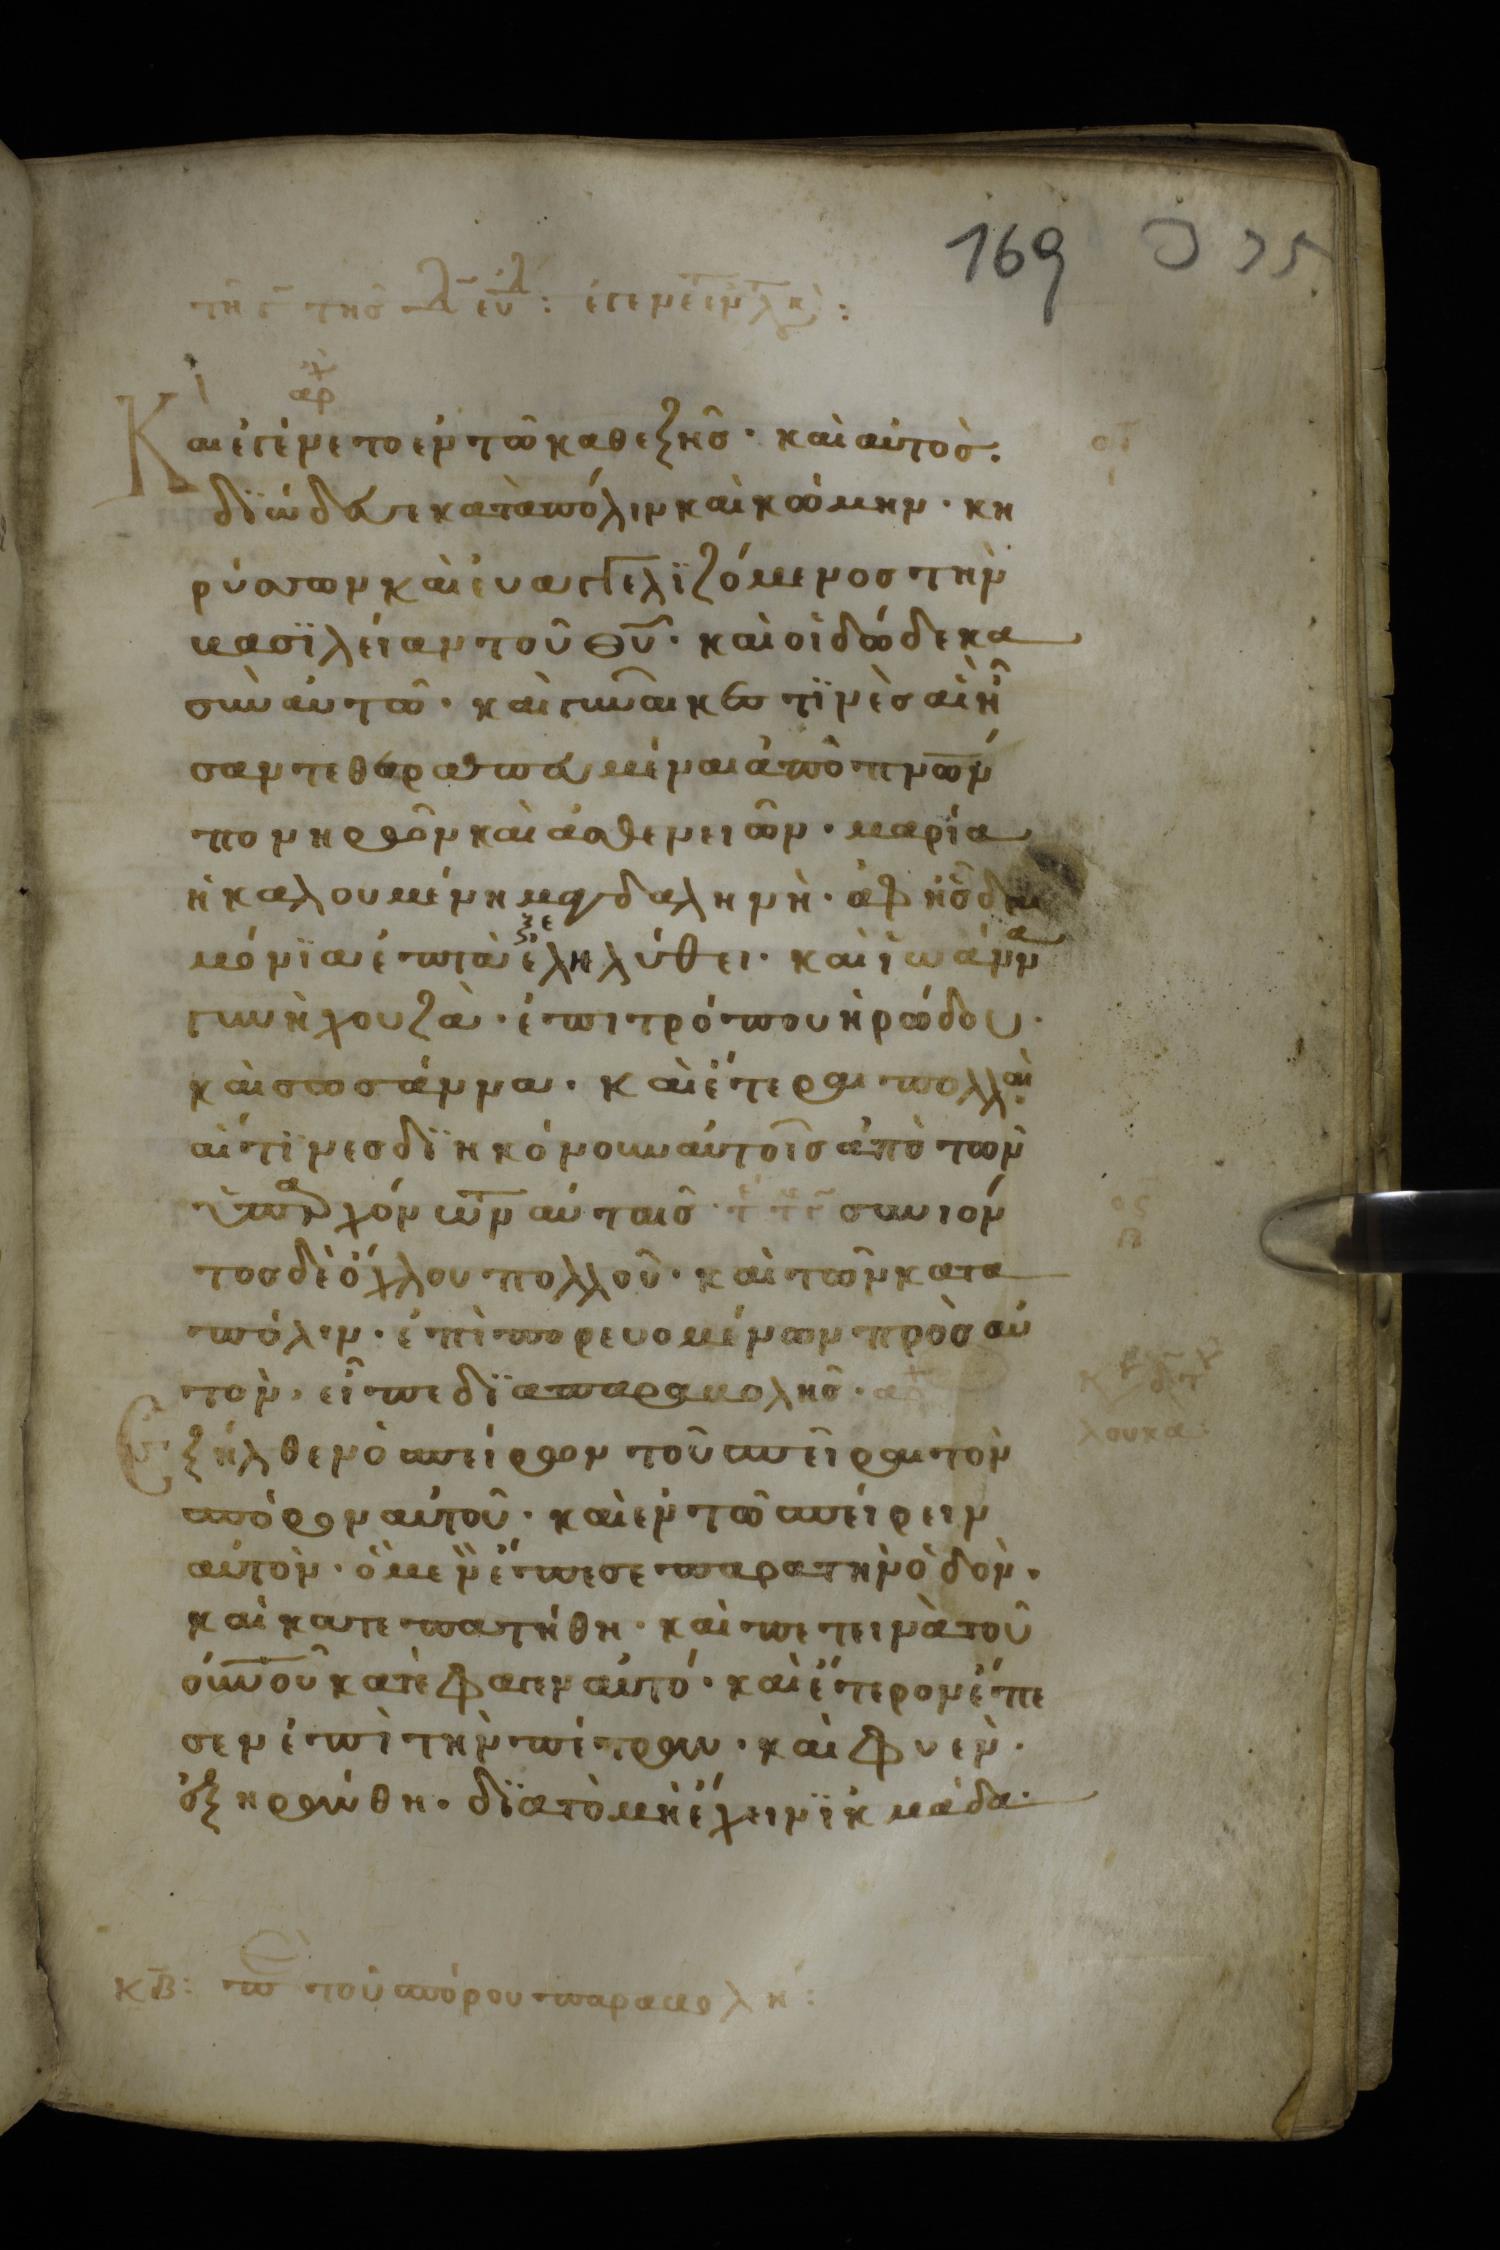 169
αρχ
Και ἐγένετο ἐν τῶ καθεξῆσ · καὶ αὐτὸσ ·
διώδευε κατὰ πόλιν καὶ κώμην · κη
ρύσσων καὶ ἐυαγγελϊζόμενοσ τὴν
βασϊλείαν τοῦ θῡ · καὶ οἱ δώδεκα
σὺν αὐτῶ · καὶ γυναῖκεσ τϊνὲσ αἳ ἦ
σαν τεθεραπευμέναι ἀπὸ πνω̅ν
πονηρῶν καὶ ἀσθενειῶν · μαρία
ἡ καλουμένη μαγδαληνὴ · ἀφ ἧσ δαι
μόνϊα ἑπτὰ ἐξεληλύθει · καὶ ἰωάννα
γυνὴ χουζᾶ · ἐπιτρόπου ἡρώδου ·
καὶ σωσάννα · καὶ ἕτεραι πολλαὶ ·
αἵτϊνεσ δϊηκόνουν αὐτοῖσ ἀπὸ τῶν
ὑπαρχόντων αὐταῖσ · συνιόν
τοσ δὲ ὄχλου πολλοῦ · καὶ τῶν κατα
πόλιν · ἐπὶπορευομένων πρὸσ αὐ
τὸν · εἶπε δϊαπαραβολῆσ · αρχ
Ἐξῆλθεν ὁ σπείρων τοῦ σπεῖραι τὸν
σπόρον αὐτοῦ · καὶ ἐν τῶ σπείρειν
αὐτὸν · ὃ μὲν ἔπεσε παρα τὴν ὁδὸν ·
καὶ κατεπατήθη · καὶ πετεινὰ τοῦ
οὐνοῦ κατέφαγεν αὐτό · καὶ ἕτερον ἔπε
σεν ἐπὶ τὴν πέτραν · καὶ φυὲν ·
ἐξηράνθη · δϊατὸ μὴ ἔχειν ϊκμάδα ·
λουκα
κβ: πε τοῦ σπόρου παραβολή: